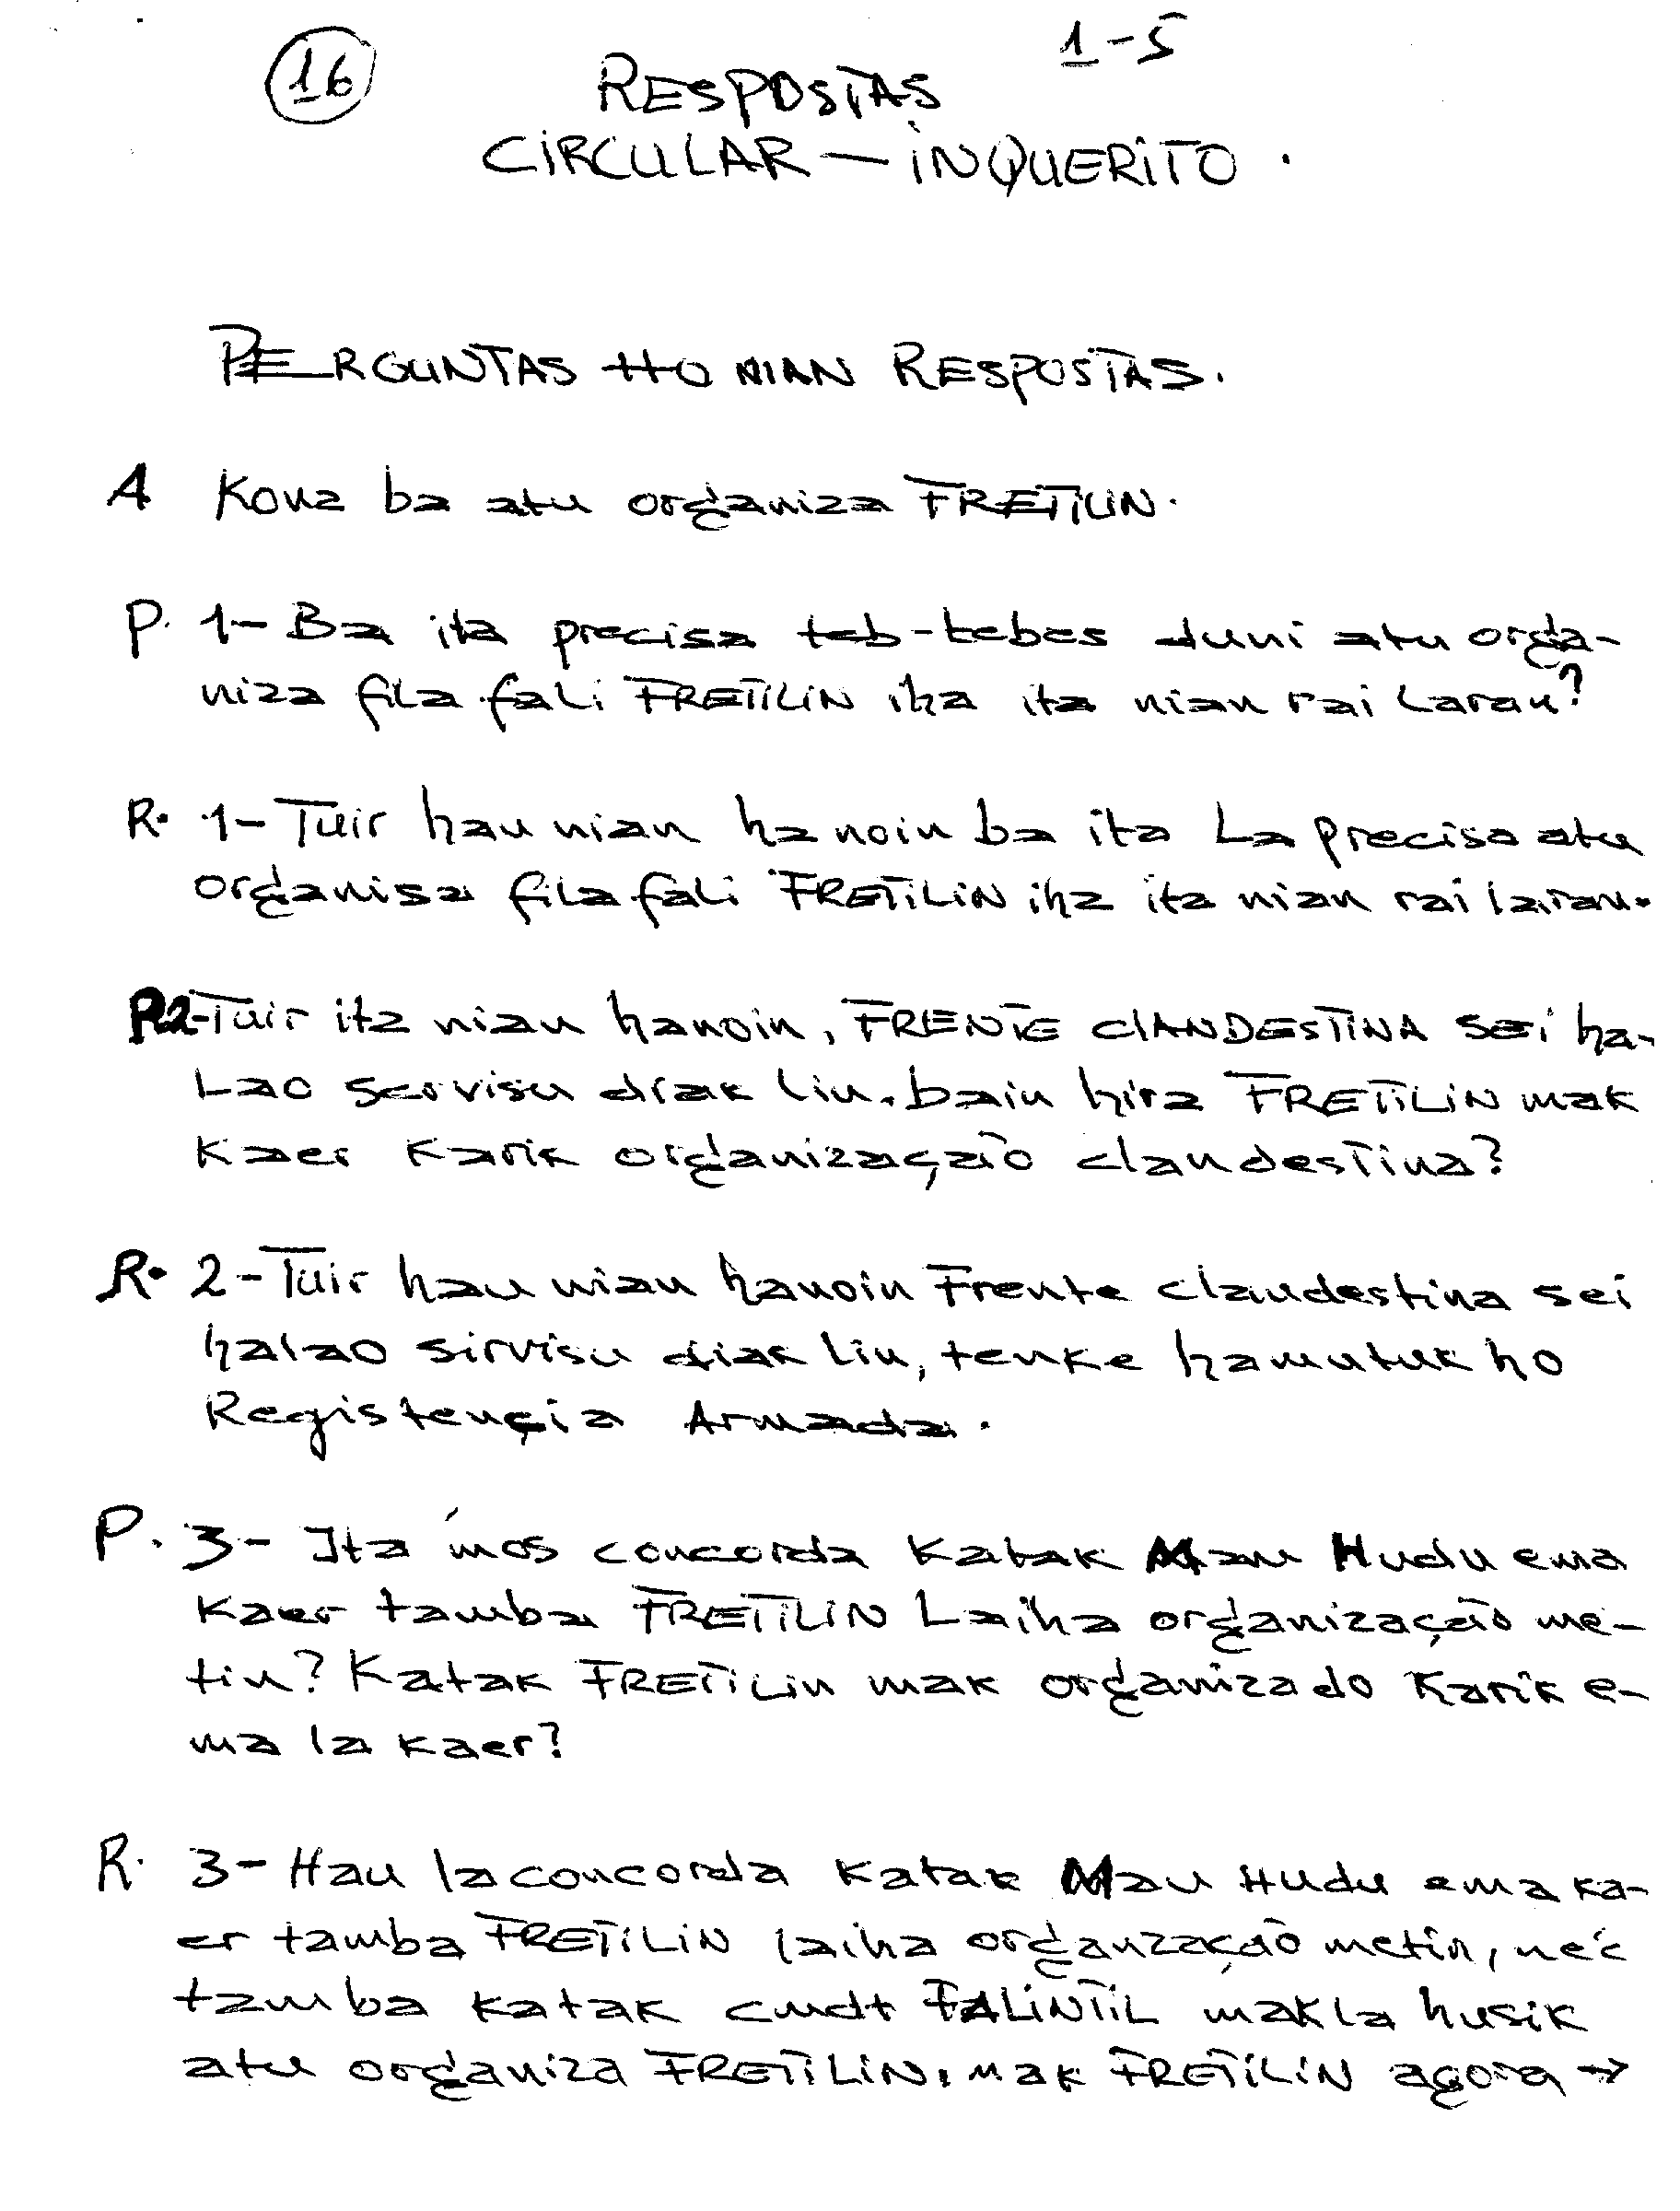 16
1-5
RESPOSTAS
CIRCULAR — INQUERITO.
PERGUNTAS HO NIAN RESPOSTAS.
A Kona ba atu organiza FRETILIN.
P. 1- Ba ita precisa teb-tebes duni atu orga-
niza fila fali FRETILIN iha ita nian rai laran?
R. 1- Tuir hau nian hanoin ba ita La precisa atu
organisa fila fali FRETILIN iha ita nian rai laran.
P2- Tuir ita nian hanoin, FRENTE CLANDESTINA sei ha-
Lao servisu diak liu, bain hira FRETILIN mak
Kaer Karik organização clandestina?
R. 2- Tuir hau nian hanoin Frente clandestina sei
halao sirvisu diak liu, tenke hamutuk ho
Registençia Armada.
P. 3- Ita mós concorda Katak Mau Hudu ema
Kaer tamba FRETILIN Laiha organização me-
tin? Katak FRETILIN mak organizado Karik e-
ma la kaer?
R. 3- Hau la concorda Katak Mau Hudu ema ka-
er tamba FRETILIN laiha organzação metin, ne'e
tamba katak cmdt FALINTIL mak la husik
atu organiza FRETILIN, mak FRETILIN agora →